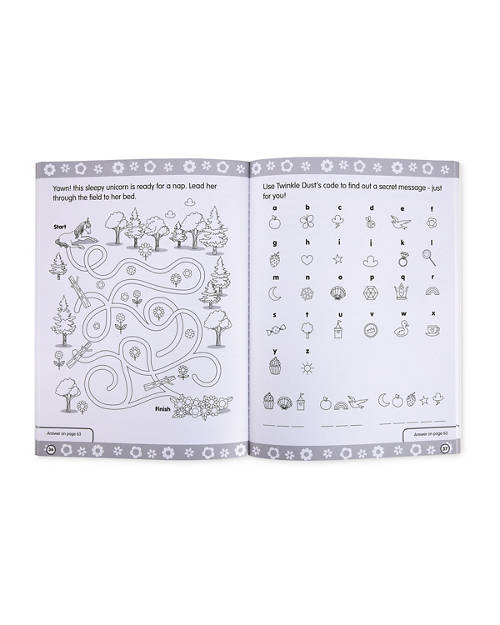 Yawn! this sleepy unicorn is ready for a nap. Lead her
through the field to her bed.
Start
Finish
Answer on page 63
36
Use Twinkle Dust's code to find out a secret message - just
for you!
a b c d e f
g h i j k l
m n o p q r
s t u v w x
y z
Answer on page 63
37